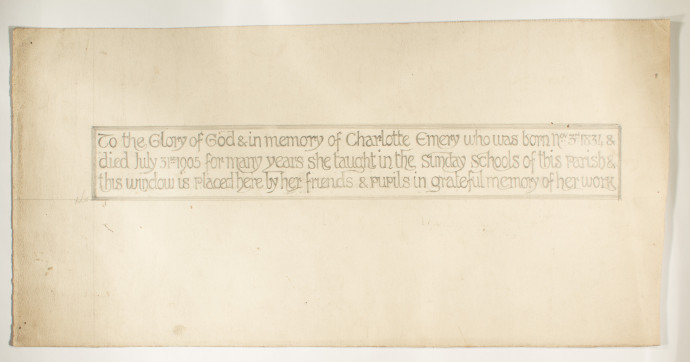 To the Glory of God & in memory of Charlotte Emery who was born Nov 5th 1834 &
died July 31st 1905 for many years she taught in the Sunday Schools of this Parish &
this window is placed here by her friends & pupils in grateful memory of her work